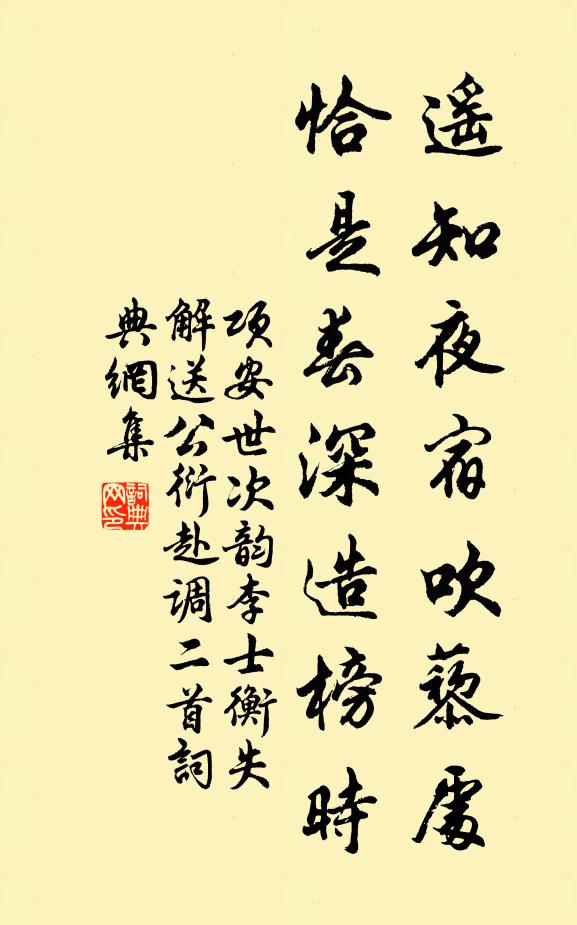 遥知夜宿吹藜處
恰是春深造榜時
項安世次韵李士衡失
解送公衍赴調二首詞
典網集
詞典网印